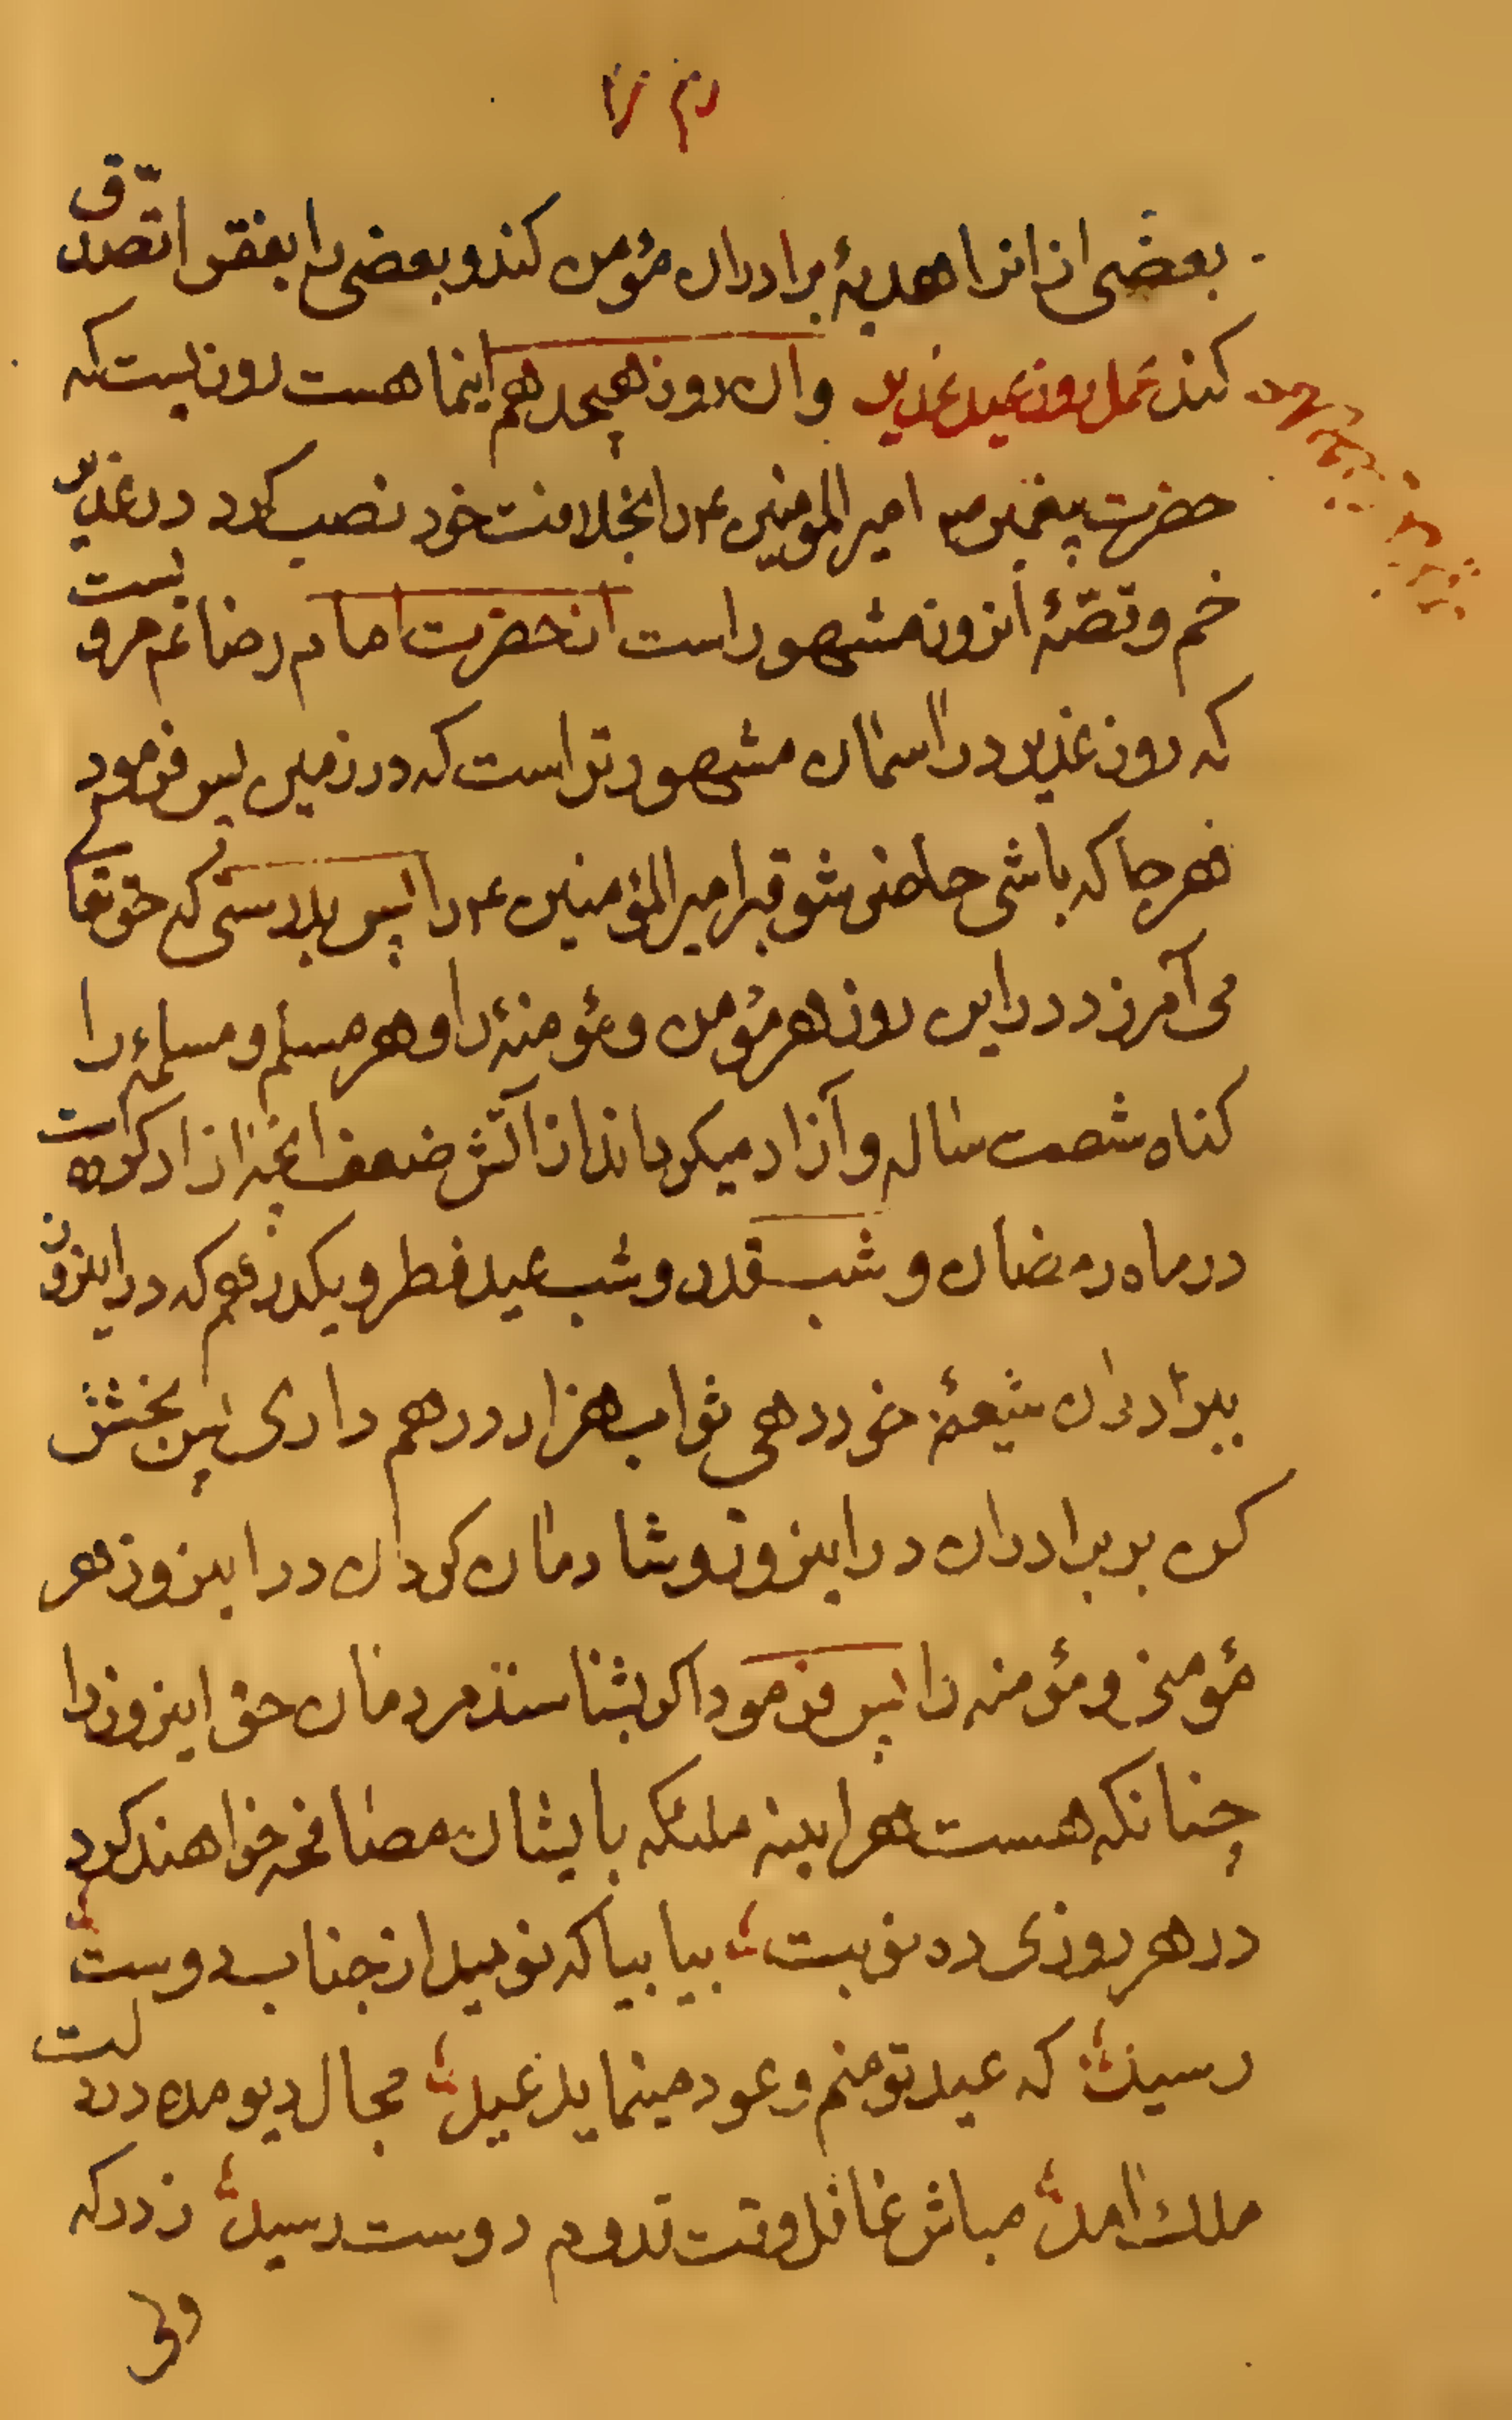 بعضی از انرا هدیهٔ برادران مؤمن کند و بعضی را بفقرا تصدّق
کند عمل روز عید غدیر وان روز هیجدهم اینماهست روزیست که
حضرت پیغمبر ص امیر المومنین ع را بخلافت خود نصب کرد در غدیر
خم و قصّهٔ انروز مشهور است از حضرت امام رضا عم مرویست
که روز غدیر در اسمان مشهورتر است که در زمین پس فرمود
هرجا که باشی حاضر شو قبر امیر المؤمنین ع را پس بدرستی که حق تعا
می آمرزد در این روز هر مؤمن و مؤمنهٔ را و هر مسلم و مسلمهٔ را
کناه شصت ساله و آزاد میکرداند از آتش ضعف انچه ازاد کرده است
در ماه رمضان و شب قدر و شب عید فطر و یکدرهم که در اینروز
ببرادران شیعهٔ خود دهی ثواب هزار درهم داری پس بخشش
کن بر برادران در اینروز و شادمان کردان در اینروز هر
مؤمن و مؤمنه را پس فرمود اکر بشناسند مردمان حق اینروز را
چنانکه هست هر اینه ملئکه با ایشان مصافحه خواهند کرد
در هر روزی ده نوبت بیا بیا که نوید از جناب دوست
رسید که عید تو منم و عود مینماید عید مجال دیو مده در دلت
ملک امد مباش غافل وقت قدوم دوست رسید ز درکه